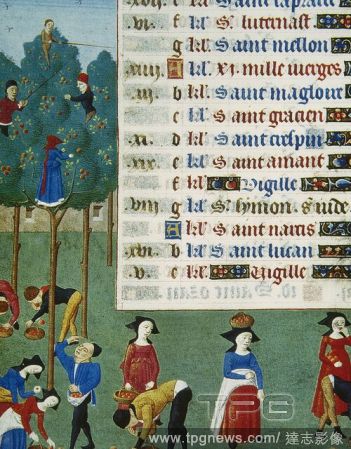 vi. kl' Sᵗ lutenast
g Saint mellon
xiiii A kl' xi. mille vierges
iii b kl' Saint magloire
c kl' Saint gracien
xi. d kl' Saint crespin
xix e kl' Saint amant
f kl' Vigille
viii g kl' Sᵗ symon. s iude
A kl' Saint narcis
xvi. b kl' Saint lucan
v. c kl' Vigille
TPG
www.tpgnews.com / 達志影像